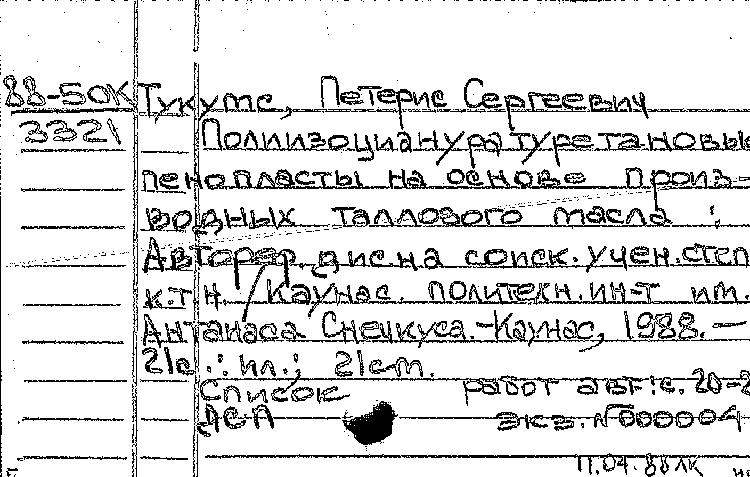 88-50К Тукумс, Петерис Сергеевич
3321 Полиизоциануратуретановы
пенопласты на основе произ-
водных таллового масла :
Автореф. дис. на соиск. учен. степ
к.т.н. / Каунас. политехн. ин-т им.
Антанаса Снечкуса. - Каунас, 1988. —
21с. : ил.; 21см.
Список работ авт.: с. 20-2
ДСП экз. №000004
11.04.88 ЛК